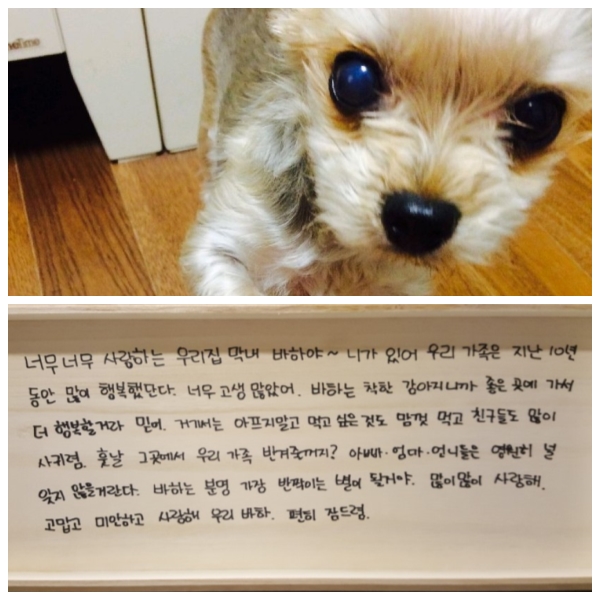 너무너무 사랑하는 우리집 막내 바하야~ 니가 있어 우리 가족은 지난 10년
동안 많이 행복했단다. 너무 고생 많았어. 바하는 착한 강아지니까 좋은 곳에 가서
더 행복할거라 믿어. 거기서는 아프지말고 먹고 싶은것도 맘껏 먹고 친구들도 많이
사귀렴. 훗날 그곳에서 우리 가족 반겨줄꺼지? 아빠·엄마·언니들은 영원히 널
잊지 않을거란다. 바하는 분명 가장 반짝이는 별이 될거야. 많이많이 사랑해.
고맙고 미안하고 사랑해 우리 바하. 편히 잠드렴.